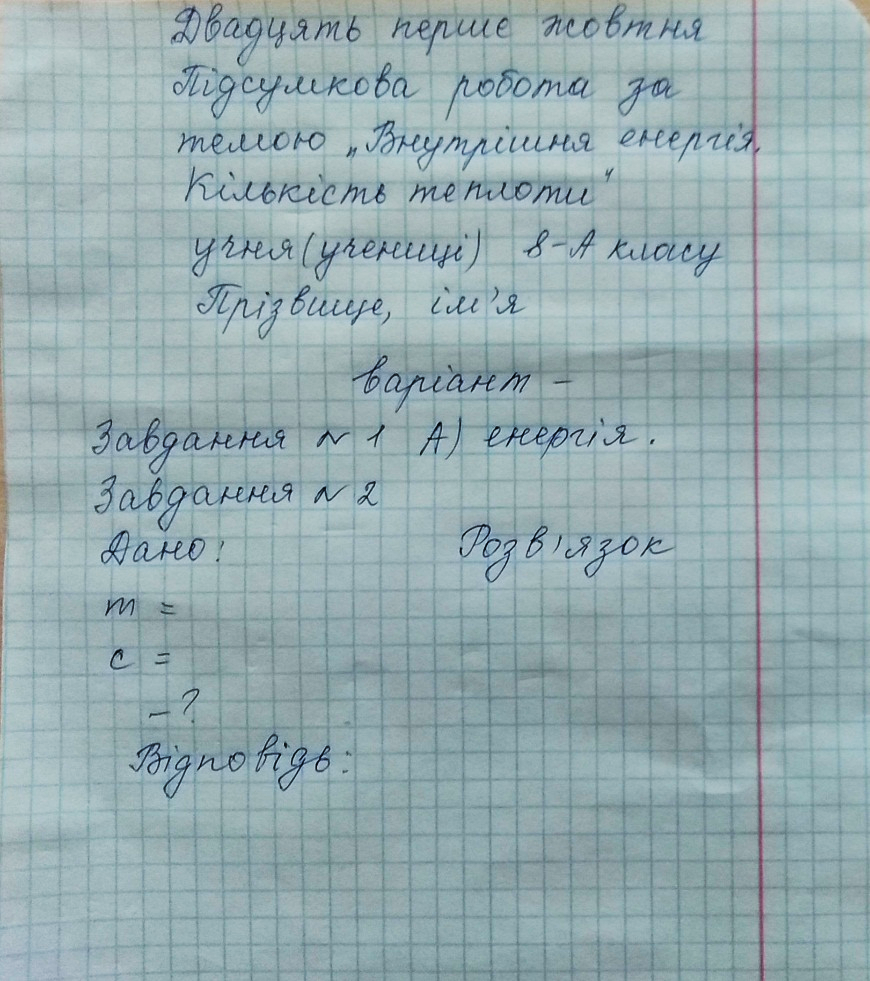 Двадцять перше жовтня
Підсумкова робота за
темою „Внутрішня енергія.
Кількість теплоти"
учня (учениці) 8-А класу
Прізвище, ім'я
варіант –
Завдання №1 А) енергія.
Завдання №2
Дано: Розв'язок
m =
c =
– ?
Відповідь: